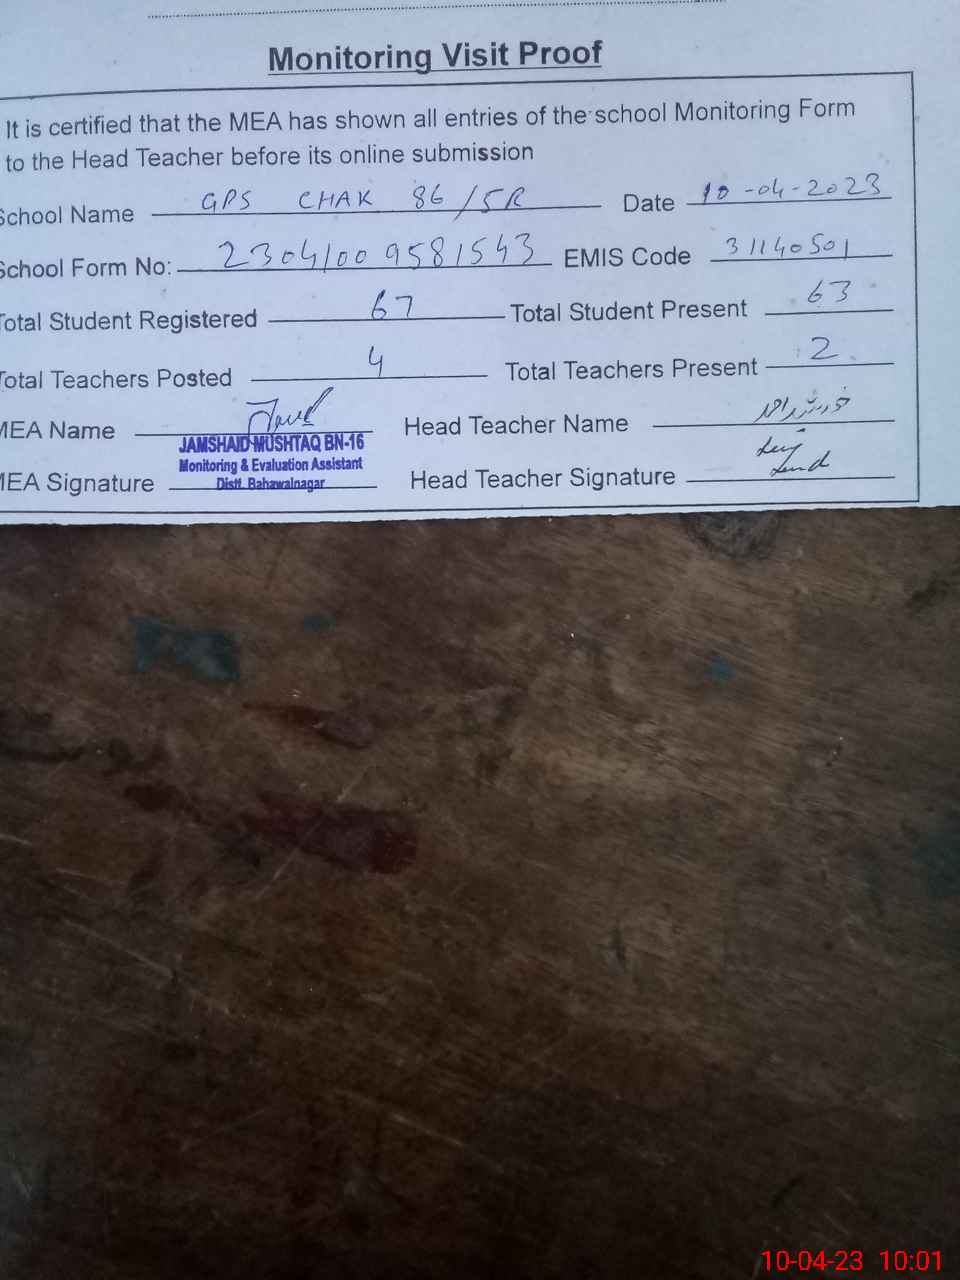 Monitoring Visit Proof
It is certified that the MEA has shown all entries of the school Monitoring Form
to the Head Teacher before its online submission
School Name GPS CHAK 86/5R Date 10-04-2023
School Form No: 23041009581543 EMIS Code 31140501
Total Student Registered 67 Total Student Present 63
Total Teachers Posted 4 Total Teachers Present 2
MEA Name Head Teacher Name خورشید احمد
JAMSHAID MUSHTAQ BN-16
Monitoring & Evaluation Assistant
MEA Signature Distt. Bahawalnagar Head Teacher Signature
10-04-23 10:01